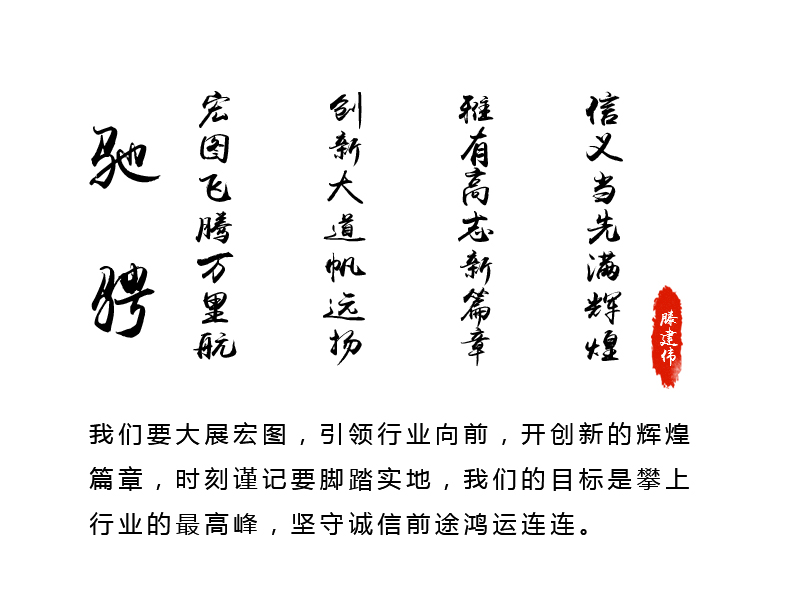 驰骋
宏图飞腾万里航
创新大道帆远扬
雅有高志新篇章
信义当先满辉煌
滕建伟
我们要大展宏图，引领行业向前，开创新的辉煌
篇章，时刻谨记要脚踏实地，我们的目标是攀上
行业的最高峰，坚守诚信前途鸿运连连。